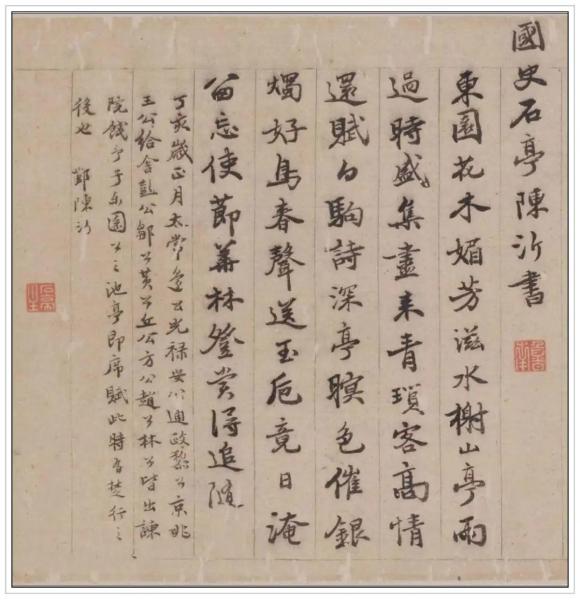 國史石亭陳沂書
東園花木媚芳滋水榭山亭雨
過時盛集盡来青瑣客高情
還賦白駒詩深亭暝色催銀
燭好鳥春聲送玉巵竟日淹
留忘使節華林登賞得追隨
丁亥歲正月太常邊公光祿安公通政黎公京兆
王公給舍彭公鄒公黄公丘公方公趙公林公皆出諫
院餞予于東園公之池亭即席賦此時有楚行之
後也 鄞陳沂